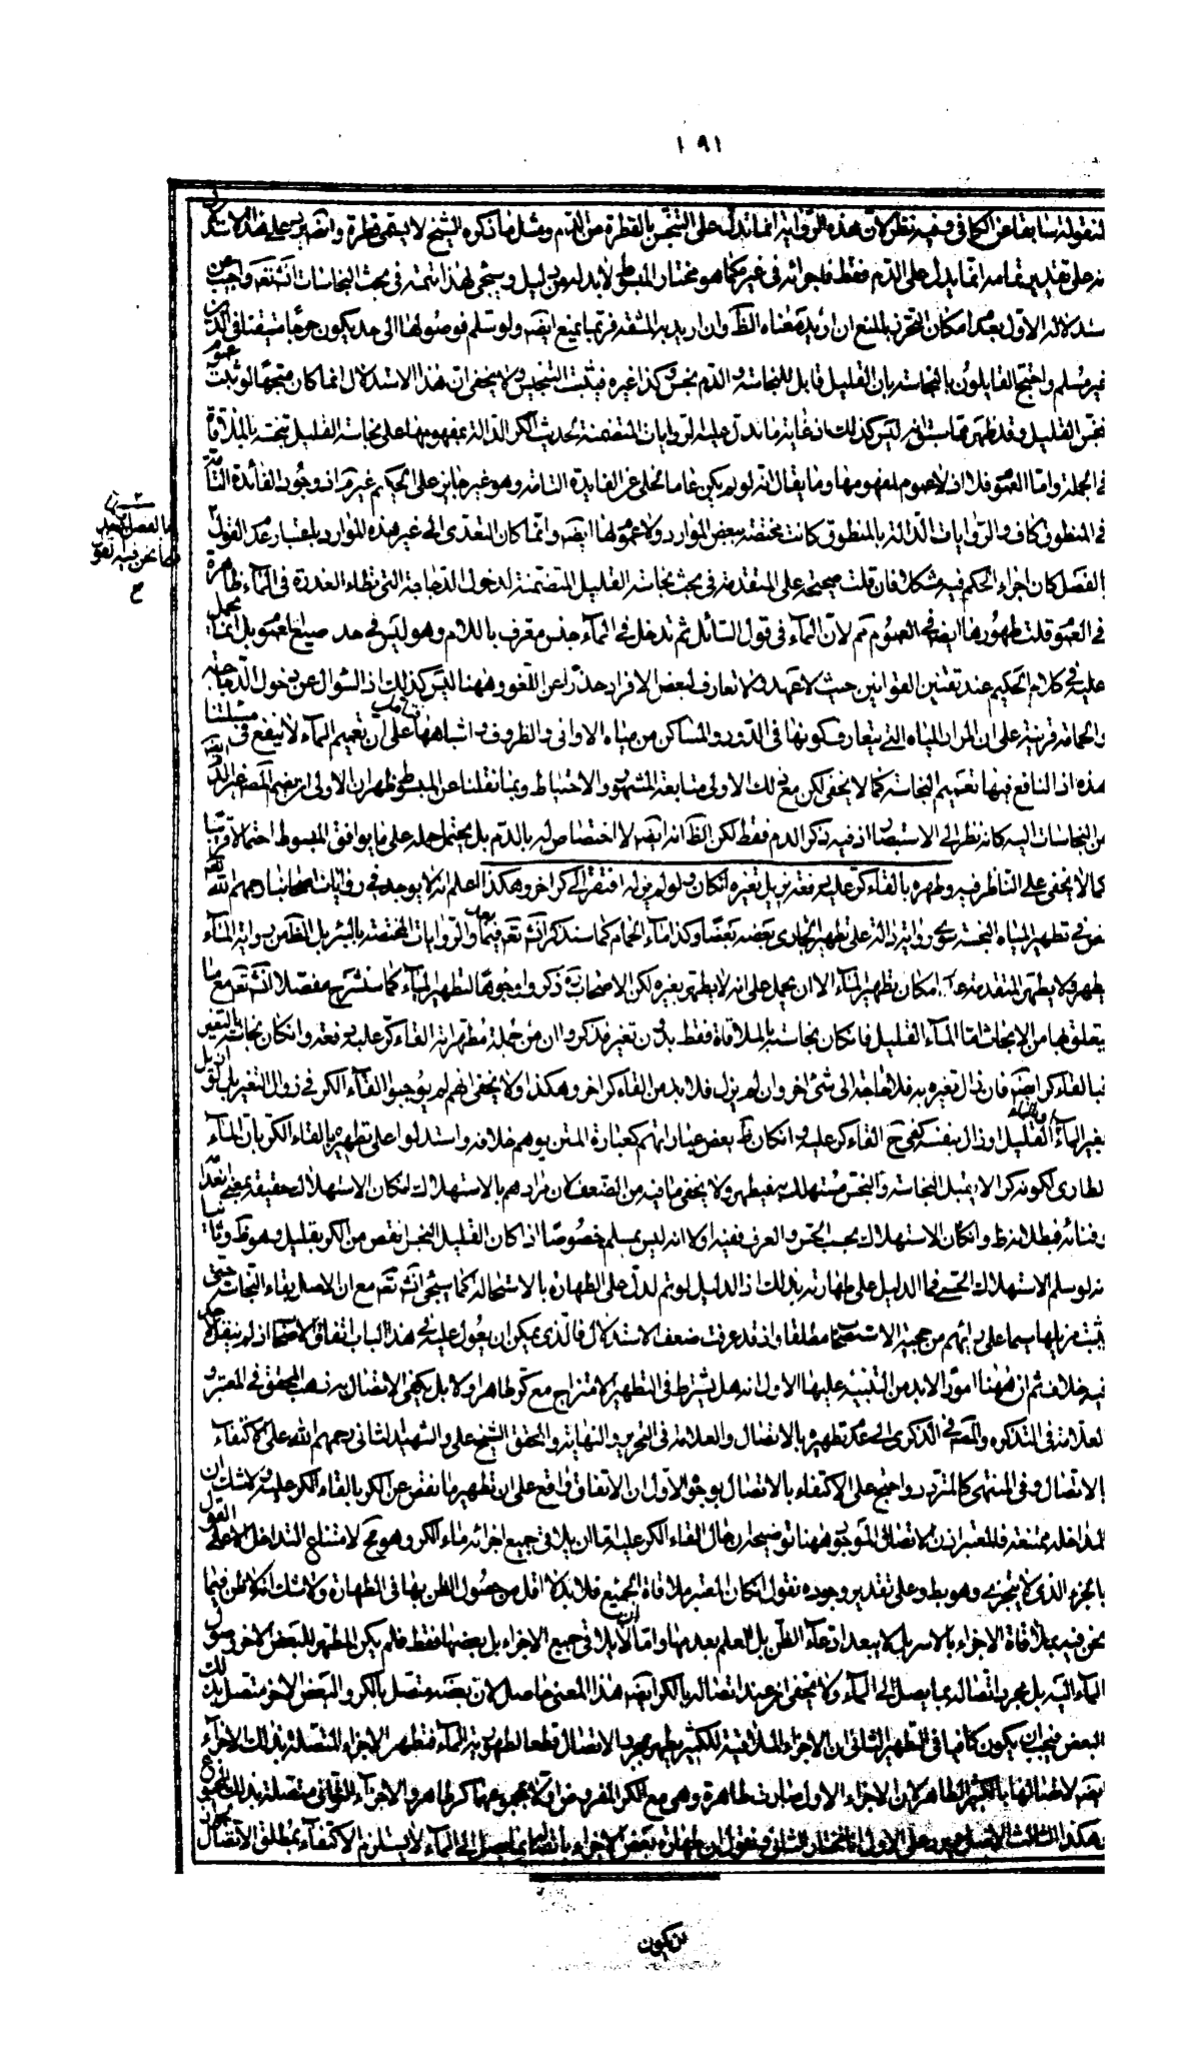 ١٩١
المنقولة سابقا عن الكافي وفيه نظر لان هذه الرواية انما تدل على التنجس بالقطرة من الدم ومثل ما ذكره الشيخ لا يسمى قطرة وايضا يرد على هذا الاستدلال
انه على تقدير تمامه انما يدل على الدم فقط فاجرائه في غيره كما هو مختار المبسوط لا بد له من دليل وسيجئ لهذا تتمة في بحث النجاسات انشاء الله تعالى واجيب عن
استدلاله الاول بعد امكان التحرز بالمنع ان اريد معناه الظ وان اريد به المشقة فربما يمنع ايضا ولو سلم فوصولها الى حد يكون حرجا منفيا في الدين
غير مسلم واحتج القايلون بالنجاسة بان القليل قابل للنجاسة والدم نجس وكذا غيره فيثبت التنجيس ولا يخفى ان هذا الاستدلال انما كان متجها لو ثبت عموم
نجس القليل وقد ظهر مما سبق انه ليس كذلك اذ غاية ما تدل عليه الروايات المتضمنة لحديث الكر الدالة بمفهومها على نجاسة القليل تنجسه بالملاقاة
في الجملة واما العموم فلا اذ لا عموم لمفهومها وما يقال انه لو لم يكن عاما لخلى عن الفايدة التامة وهو غير جايز على الحكيم غير مراد وجود الفائدة التامة
في المنطوق كاف والروايات الدالة بالمنطوق كانت مختصة ببعض الموارد ولا عموم لها ايضا وانما كان التعدي الى غير هذه الموارد باعتبار عدم القول
بالفصل كان اجراء الحكم فيه مشكلا فان قلت صحيحة علي المتقدمة في بحث نجاسة القليل المتضمنة لدخول الدجاجة التي تطاء العذرة في الماء ظاهرة
في العموم قلت ظهورها ايضا في العموم مم لان الماء في قول السائل ثم تدخل في الماء جنس معرف باللام وهو ليس في حد صيغ العموم بل انما يحمل
عليه في كلام الحكيم عند تقنين القوانين حيث لا عهد ولا تعارف لبعض الافراد حذرا عن اللغو وههنا ليس كذلك اذ السؤال عن دخول الدجاجة
والحمامة قرينة على ان المراد المياه التي يتعارف كونها في الدور والمساكن من مياه الاواني والظروف واشباهها على ان تعميم الماء لا ينفع في مسئلتنا
هذه اذ النافع فيها تعميم النجاسة كما لا يخفى لكن مع ذلك الاولى متابعة المشهور والاحتياط وبما نقلنا عن المبسوط ظهر ان الاولى
من النجاسات اليه كانه نظر الى الاستبصار اذ فيه ذكر الدم فقط لكن الظ انه ايضا لا اختصاص له بالدم بل يحتمل حمله على ما يوافق المبسوط احتمالا قريبا
كما لا يخفى على الناظر فيه وطهره بالقاء كر عليه دفعة يزيل تغيره ان كان ولو لم يزل افتقر الى كر اخر وهكذا اعلم انه لا يوجد في روايات اصحابنا رحمهم الله
نص في تطهير المياه النجسة سوى رواية دالة على تطهير الجاري بعضه بعضا وكذا ماء الحمام كما سنذكر انشاء الله تعالى والروايات المختصة بالبئر بل الظ من رواية الماء
يطهر ولا يطهر المتقدمة عدم امكان تطهير الماء الا ان يحمل على انه لا يطهر بغيره لكن الاصحاب ذكروا وجوها لتطهير المياه كما سنشرح مفصلا انشاء الله تعالى مع ما
يتعلق بها من الابحاث اما الماء القليل فان كان نجاسته بالملاقاة فقط بدون تغير فذكروا ان من جملة مطهراته القاء كر عليه دفعة وان كان نجاسته بالتغير
فبالقاء كر ايضا فان زال تغيره به فلا حاجة الى شئ اخر وان لم يزل فلا بد من القاء كر اخر وهكذا ولا يخفى انهم لم يوجبوا القاء الكر في زوال التغير بل لو
تغير الماء القليل وزال بنفسه كفى ح القاء كر عليه وان كان ظ بعض عباراتهم كعبارة المتن يوهم خلافه واستدلوا على تطهيره بالقاء الكر بان الماء
الطاري لكونه كرا لا يقبل النجاسة والنجس مستهلك به فيطهر ولا يخفى ما فيه من الضعف لان مرادهم بالاستهلاك ان كان الاستهلاك حقيقة بمعنى انعدامه
وفنائه فبطلانه ظ وان كان الاستهلاك بحسب الحس والعرف ففيه اولا انه ليس بمسلم خصوصا اذا كان القليل النجس انقص من الكر بقليل وهو ظ وثانيا
انه لو سلم الاستهلاك الحسي فما الدليل على طهارته بذلك اذ الدليل لو تم لدل على الطهارة بالاستحالة كما سيجئ انشاء الله تعالى مع ان الاصل بقاء النجاسة حتى
يثبت مزيلها سيما على رايهم من حجية الاستصحاب مطلقا واذ قد عرفت ضعف الاستدلال فالذي يمكن ان يعول عليه في هذا الباب اتفاق الاصحاب اذ لم ينقل لاحد
فيه خلاف ثم ان ههنا امورا لا بد من التنبيه عليها الاول انه هل يشترط في التطهير الامتزاج مع كر طاهر او لا بل يكفي الاتصال به ذهب المحقق في المعتبر و
العلامة في التذكرة والمصنف في الذكرى الى عدم تطهيره بالاتصال والعلامة في التحرير والنهاية والمحقق الشيخ علي والشهيد الثاني رحمهم الله على الاكتفاء
بالاتصال وفي المنتهى كالمتردد واحتج على الاكتفاء بالاتصال بوجوه الاول ان الاتفاق واقع على ان تطهير ما نقص عن الكر بالقاء الكر عليه ولا شك ان
المداخلة ممتنعة فالمعتبر اذن الاتصال الموجود ههنا توضيحه ان حال القاء الكر عليه اما ان يلاقي جميع اجزائه ماء الكر وهو مح لامتناع التداخل الا على القول
بالجزء الذي لا يتجزى وهو بط وعلى تقدير وجوده نقول ان كان المعتبر ملاقاة الجميع فلا بد لا اقل من حصول الظن بها في الطهارة ولا شك انه لا ظن فيما
نحن فيه بملاقاة الاجزاء بالاسر بل لا يبعد ادعاء الظن بل العلم بعدمها واما ان لا يلاقي جميع الاجزاء بل بعضها فقط فلم يكن المطهر للبعض الاخر وصول
الماء اليه بل مجرد اتصاله بما يصل الى الماء ولا يخفى ان عند اتصاله بالكر ايضا هذا المعنى حاصل لان بعضه متصل بالكر والبعض الاخر متصل بذلك
البعض فيجب ان يكون كافيا في التطهير الثاني ان الاجزاء الملاقية للكثير يطهر بمجرد الاتصال قطعا لطهورية الماء فتطهر الاجزاء المتصلة بذلك الاجزاء
ايضا لاتصالها بالكثير الطاهر لان الاجزاء الاول صارت طاهرة وهي مع الكر المفروض اولا مجموعهما كر طاهر والاجزاء الثواني متصلة بذلك المجموع
وهكذا الثالث الاصل ويرد على الاول انا نختار الثاني ونقول ان طهارة بعض الاجزاء باتصالها بما يصل الى الماء لا يستلزم الاكتفاء بمطلق الاتصال
لن يكون